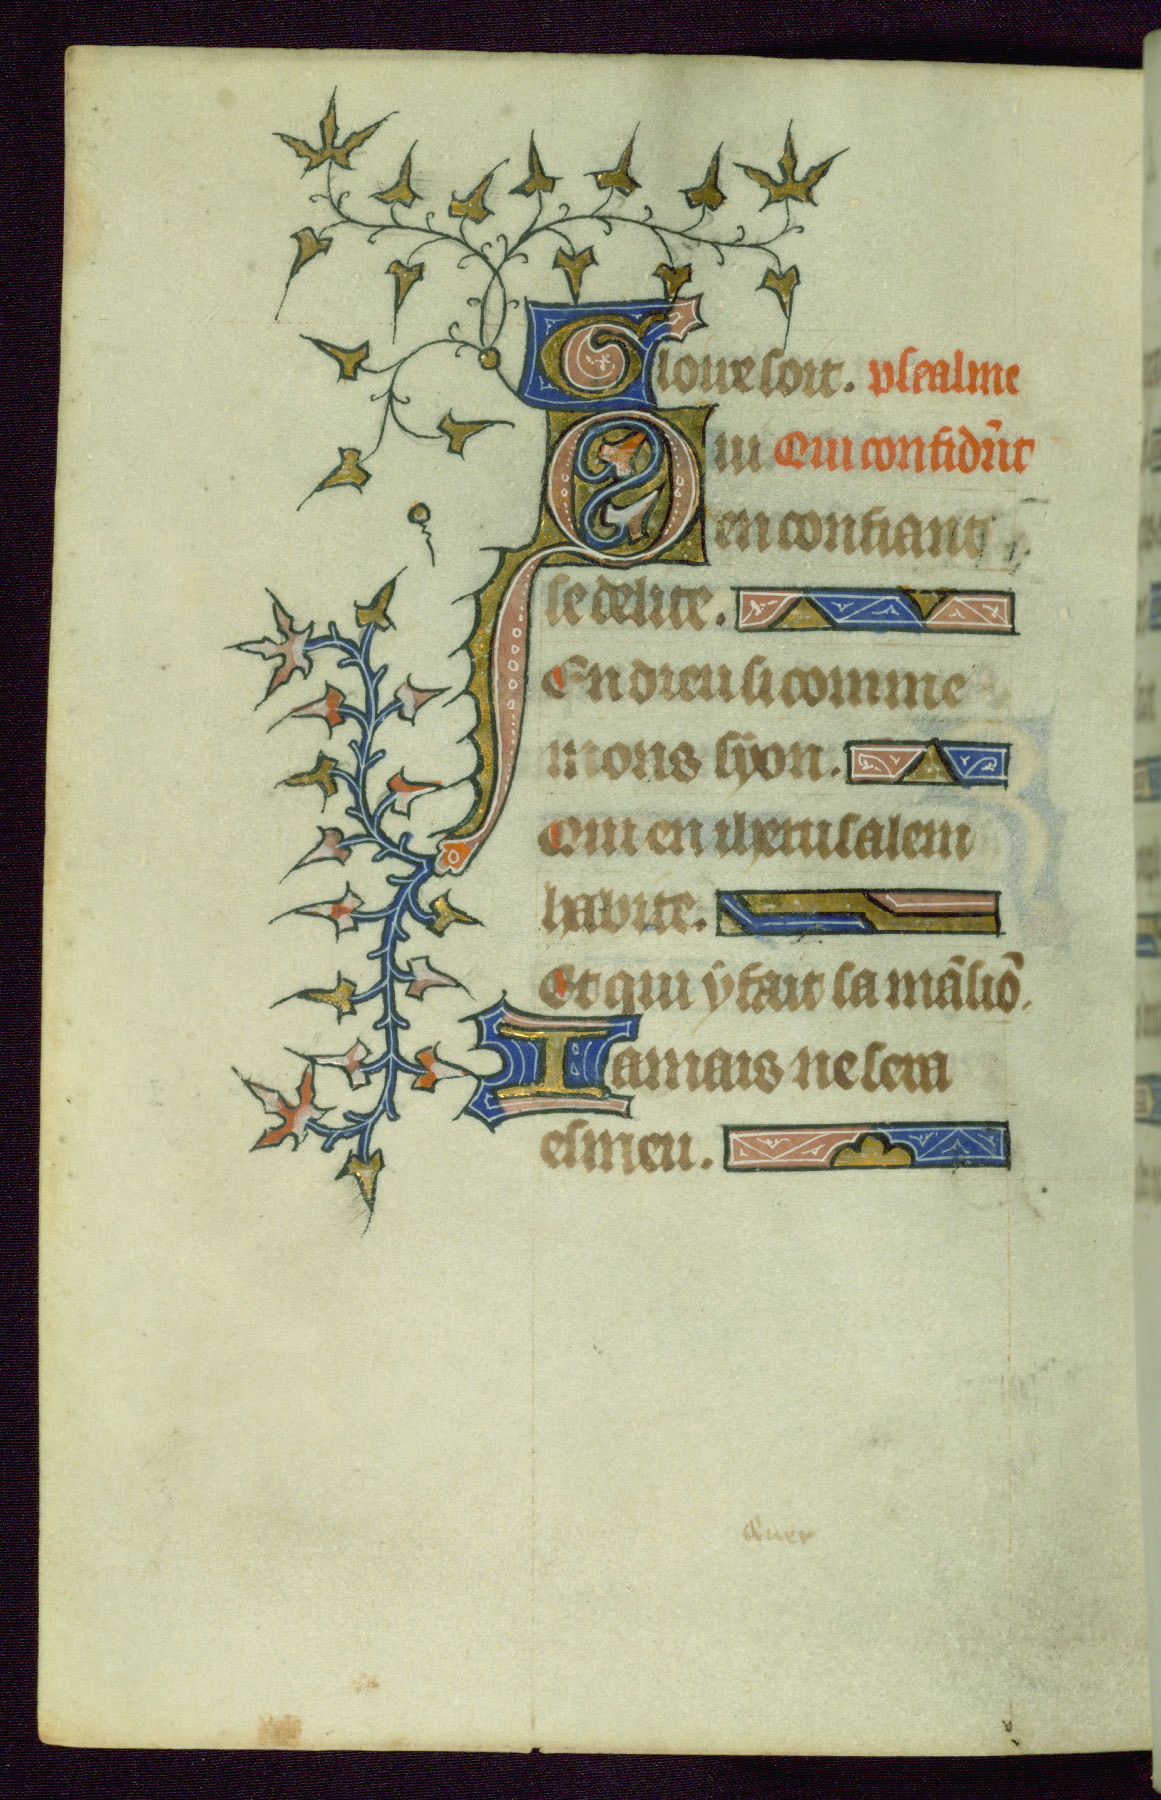 Gloire soit. psealme
Qui Qui confidr̃nt
en confiant
se delite.
En dieu si comme
mons syon.
Qui en iherusalem
habite.
Et qui y fait sa mãsiõ.
Iamais ne sera
esmeu.